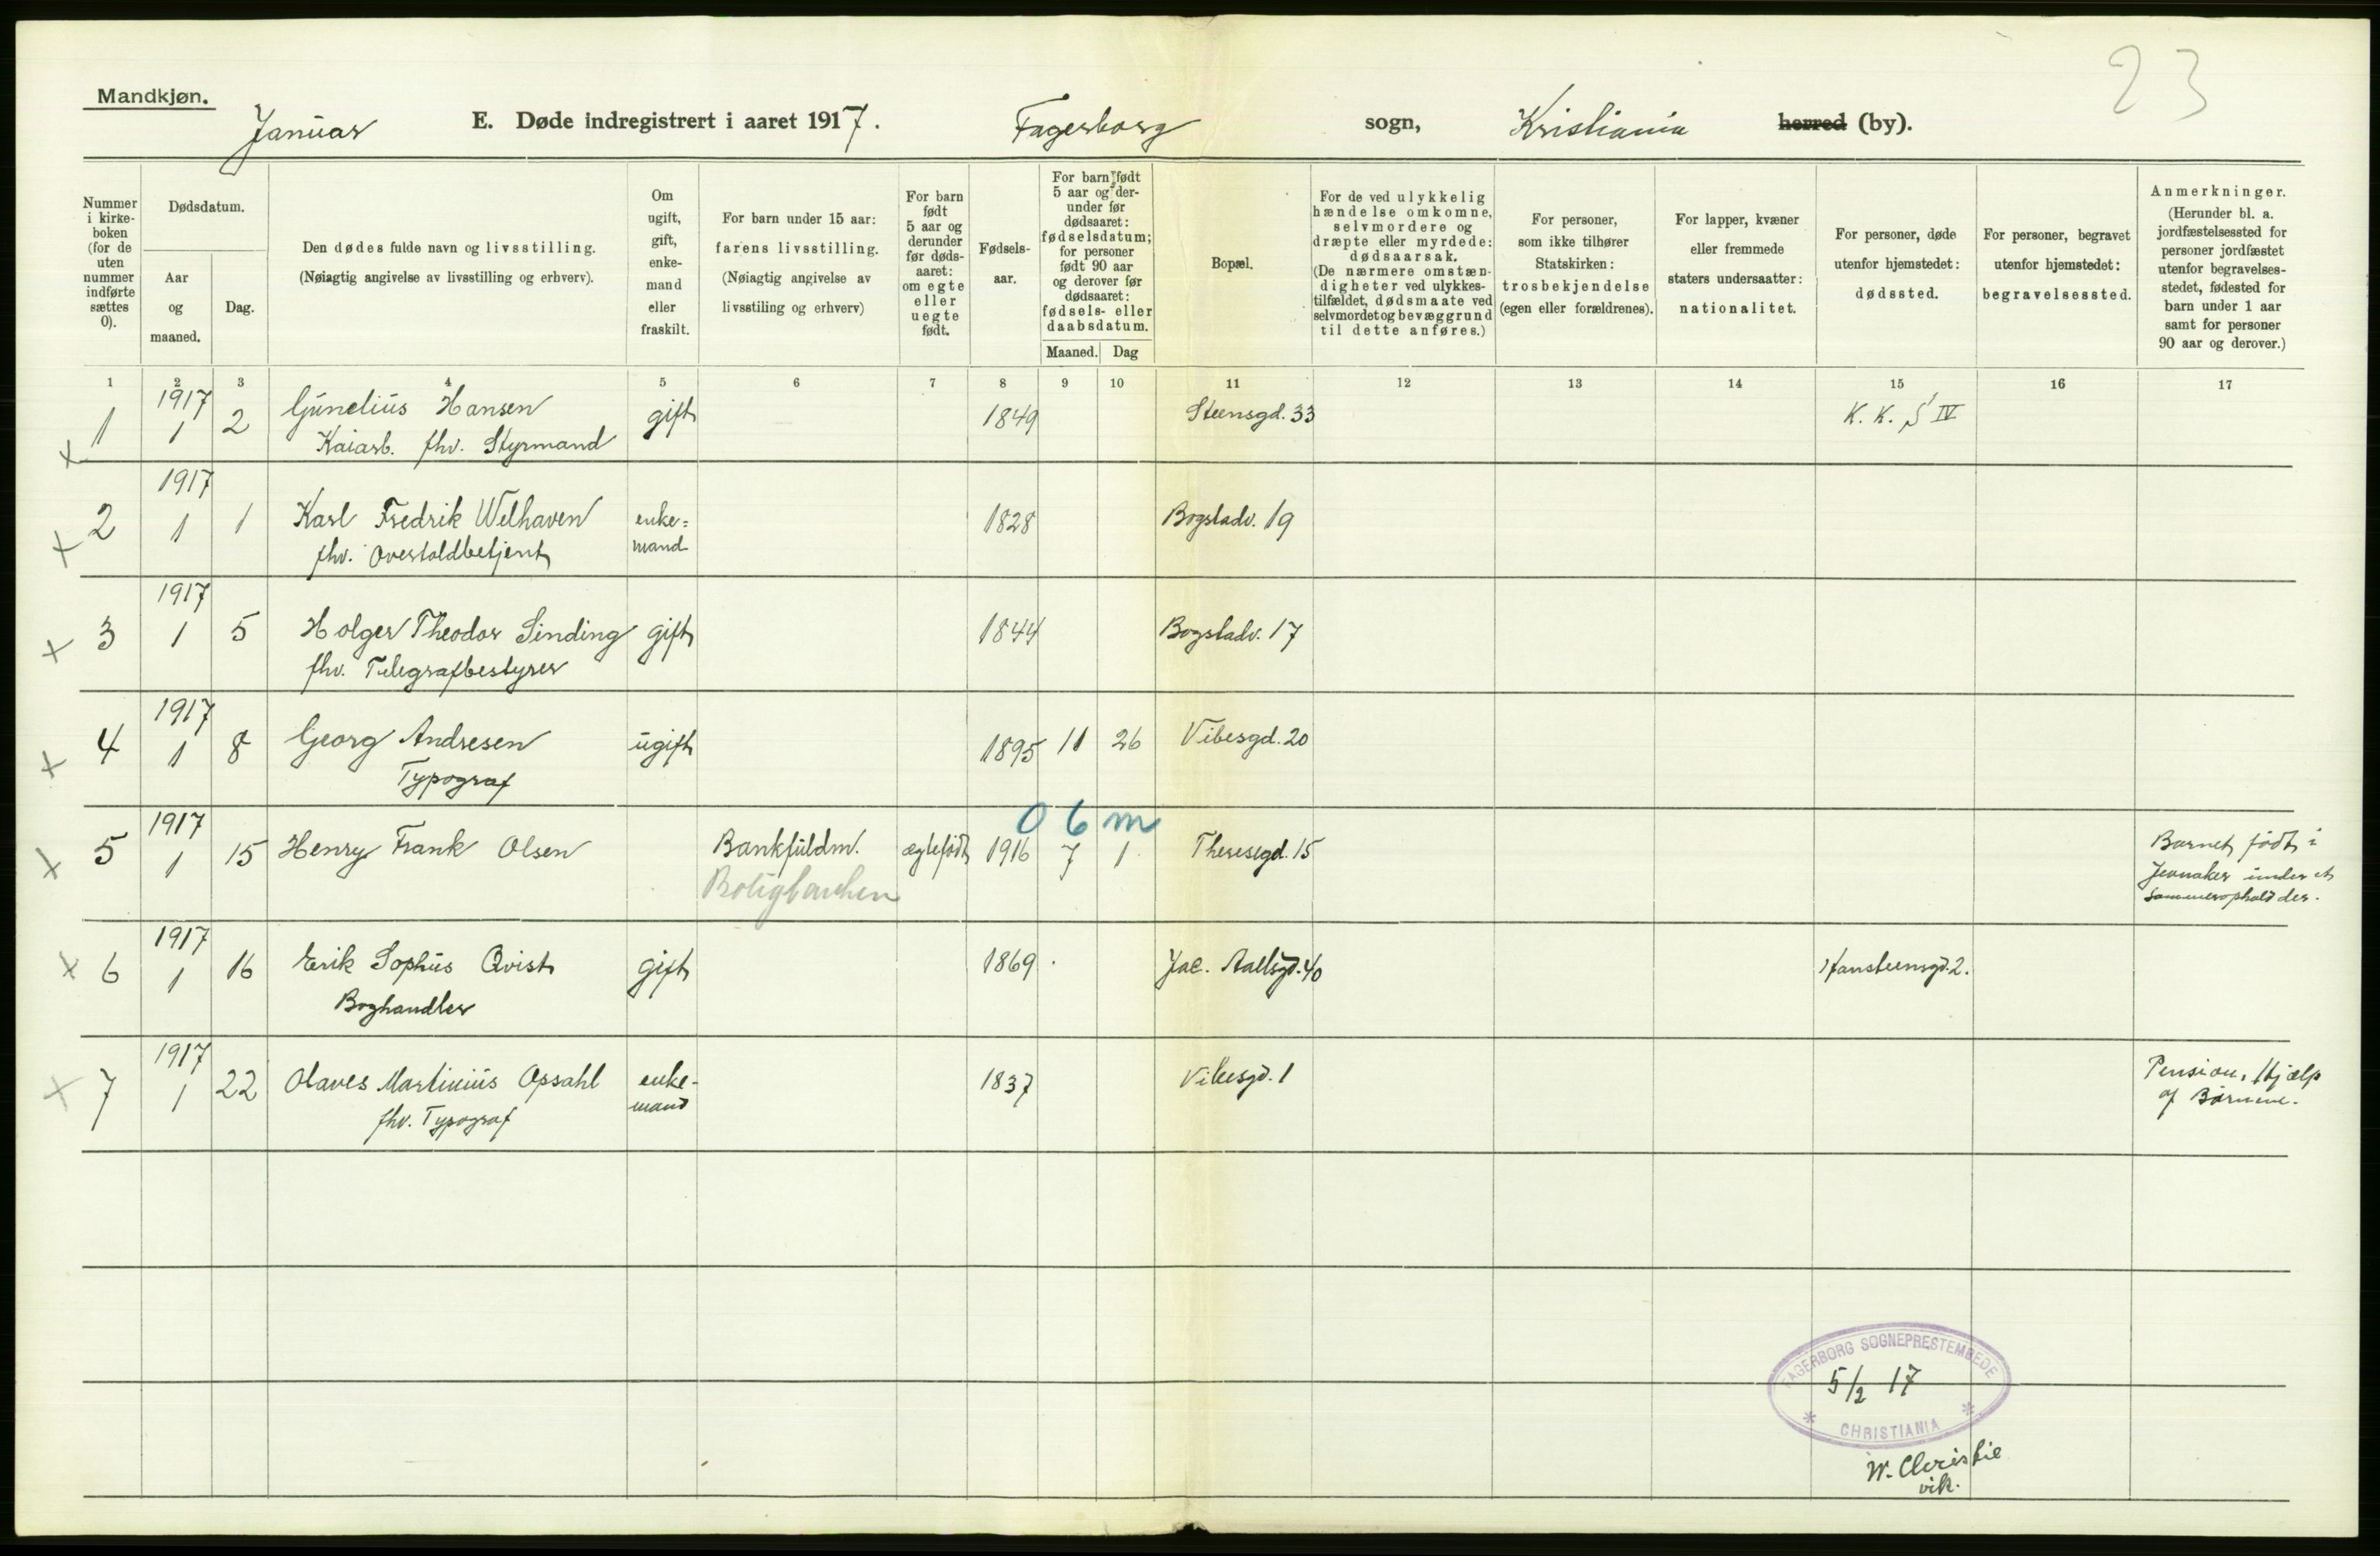 23
Mandkjøn.
Januar E. Døde indregistrert i aaret 1917. Fagerborg sogn, Kristiania herred (by).
Nummer i kirkeboken (for de uten nummer indførte sættes 0).
Dødsdatum.
Aar og maaned.
Dag.
Den dødes fulde navn og livsstilling.
(Nøiagtig angivelse av livsstilling og erhverv).
Om ugift, gift, enkemand eller fraskilt.
For barn under 15 aar: farens livsstilling.
(Nøiagtig angivelse av livsstiling og erhverv)
For barn født 5 aar og derunder før dødsaaret: om egte eller uegte født.
Fødselsaar.
For barn født 5 aar og derunder før dødsaaret: fødselsdatum; for personer født 90 aar og derover før dødsaaret: fødsels- eller daabsdatum.
Maaned. Dag
Bopæl.
For de ved ulykkelig hændelse omkomne, selvmordere og dræpte eller myrdede: dødsaarsak.
(De nærmere omstændigheter ved ulykkestilfældet, dødsmaate ved selvmordet og bevæggrund til dette anføres.)
For personer, som ikke tilhører Statskirken: trosbekjendelse (egen eller forældrenes).
For lapper, kvæner eller fremmede staters undersaatter: nationalitet.
For personer, døde utenfor hjemstedet: dødssted.
For personer, begravet utenfor hjemstedet: begravelsessted.
Anmerkninger.
(Herunder bl. a. jordfæstelsessted for personer jordfæstet utenfor begravelsesstedet, fødested for barn under 1 aar samt for personer 90 aar og derover.)
1 2 3 4 5 6 7 8 9 10 11 12 13 14 15 16 17
x 1 1917 1 2 Gunelius Hansen gift 1849 Steensgd. 33 K. K. S IV
Kaiarb. fhv. Styrmand
x 2 1917 1 1 Karl Fredrik Welhaven enke= 1828 Bogstadv. 19
fhv. Overtoldbetjent mand
x 3 1917 1 5 Holger Theodor Sinding gift 1844 Bogstadv. 17
fhv. Telegrafbestyrer
x 4 1917 1 8 Georg Andresen ugift 1895 11 26 Vibesgd. 20
Typograf
0 6 m
x 5 1917 1 15 Henry Frank Olsen Bankfuldm. ægtefødt 1916 7 1 Theresegd. 15 Barnet født i
Boligbanken Jevnaker under et
Sommerophold der.
x 6 1917 1 16 Erik Sophus Qvist gift 1869 Jac. Aallsgd. 40 Hansteensgd. 2.
Boghandler
x 7 1917 1 22 Olaves Martinius Opsahl enke- 1837 Vibesgd. 1 Pension, Hjælp
fhv. Typograf mand af Børnene.
FAGERBORG SOGNEPRESTEMBEDE
5/2 17
* CHRISTIANIA *
W. Christie
vik.